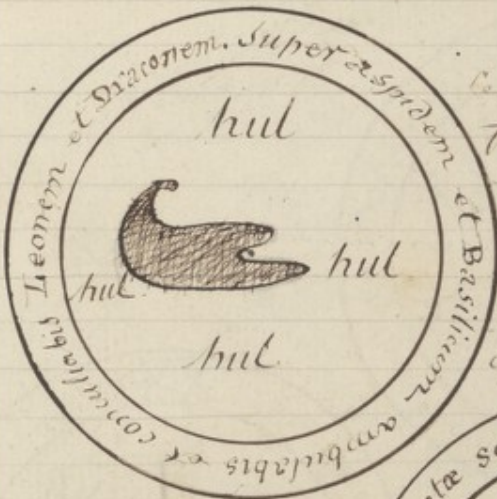 Super aspidem et Basilicum ambulabis et conculiabis Leonem et Draconem.
hul
hul
hul
hul
tæ